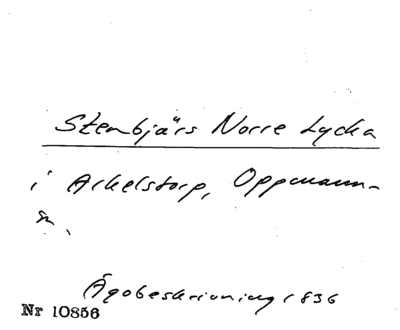 Stenbjärs Norre Lycka
i Arkelstorp, Oppmanna-
sn.
Ägobeskrivning 1836
Nr 10856